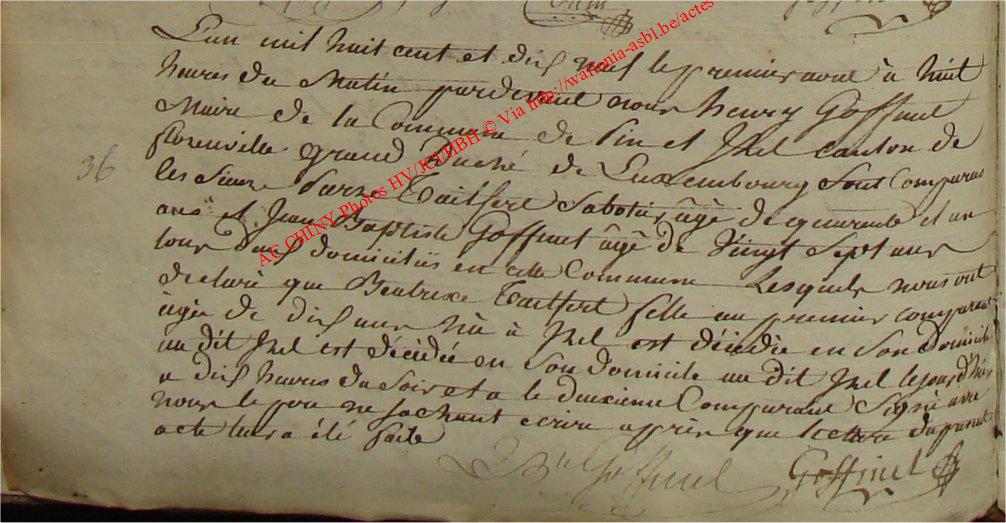 L'an mil huit cent et dix neuf le premier avril à huit
heures du Matin pardevant nous henry Goffinet
Maire de la Commune de Pin et Izel canton de
florenville grand Duché de Luxembourg Sont Comparus
36
les Sieurs Pierre Tailfert Sabotier âgé de quarante et un
ans et Jean Baptiste Goffinet âgé de Vingt Sept ans
tous deux domiciliés en cette Commune Lesquels nous ont
declaré que Beatrixe Tailfert fille au premier comparant
agée de dix ans née à Izel est décédée en Son Domicile
au dit Izel est décédée en Son Domicile au dit Izel le jour d'hier
a dix heures du Soir et a le deuxieme Comparant Signé avec
nous le pere ne Sachant écrire après que lecture du present
acte leur a été faite
Goffinet
Goffinet
AE CHINY Photos HV/KT/HBH © Via http://wallonia-asbl.be/actes